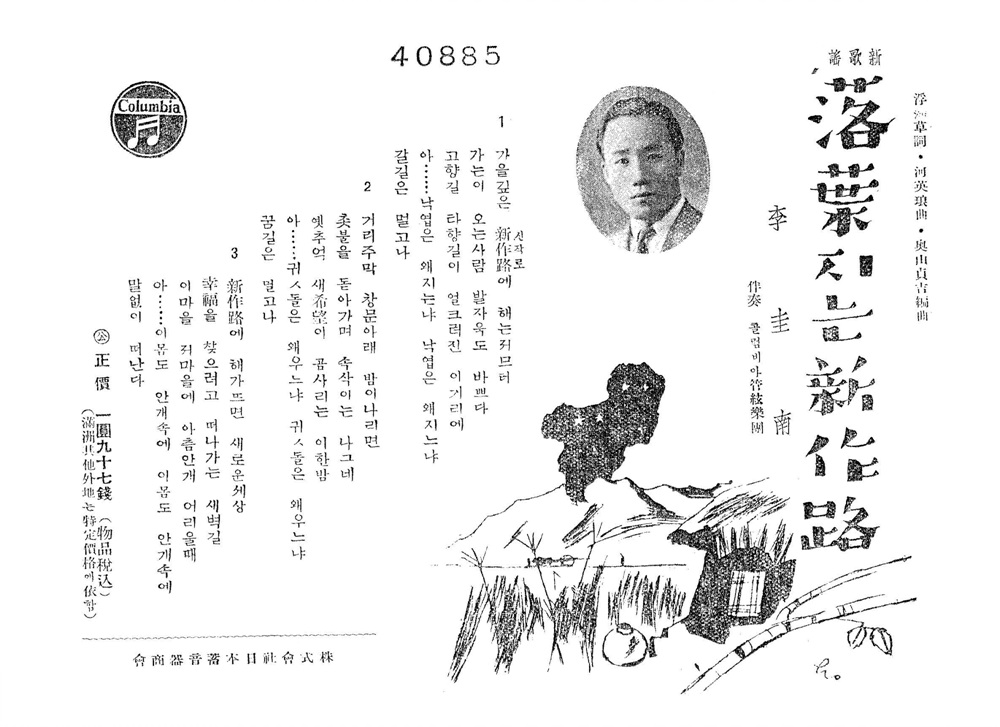 40885
新歌謠
落葉지는新作路
浮雲草詞・河英琅曲・奧山貞吉編曲
李圭南
伴奏 콜럼비아管絃樂團
1
가을깊은 新作路에 해는저므러
신작로
가는이 오는사람 발자욱도 바쁘다
고향길 타향길이 얼크러진 이거리에
아……낙엽은 왜지는냐 낙엽은 왜지느냐
갈길은 멀고나
2
거리주막 창문아래 밤이나리면
촛불을 돋아가며 속삭이는 나그네
옛추억 새希望이 곰사리는 이한밤
아……귀ㅅ돌은 왜우느냐 귀ㅅ돌은 왜우느냐
꿈길은 멀고나
3
新作路에 해가뜨면 새로운세상
幸福을 찾으려고 떠나가는 새벽길
이마을 저마을에 아츰안개 어리울때
아……이몸도 안개속에 이몸도 안개속에
말없이 떠난다
公 正價 一圓九十七錢 (物品稅込)
(滿洲其他外地는特定價格에依함)
Columbia
株式會社日本蓄音器商會